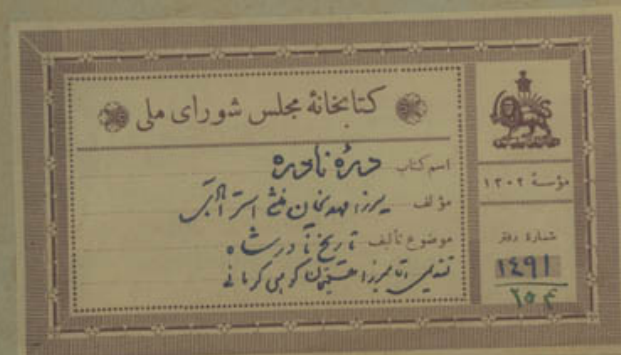 کتابخانهٔ مجلس شورای ملی
اسم کتاب درهٔ نادره
مؤلف میرزا مهدیخان منشی استرآبادی
موضوع تألیف تاریخ نادرشاه
تقدیمی آقا میرزا
کرمانی
مؤسسهٔ ۱۳۰۲
شمارهٔ دفتر
۱۴۹۱
۲۵۴